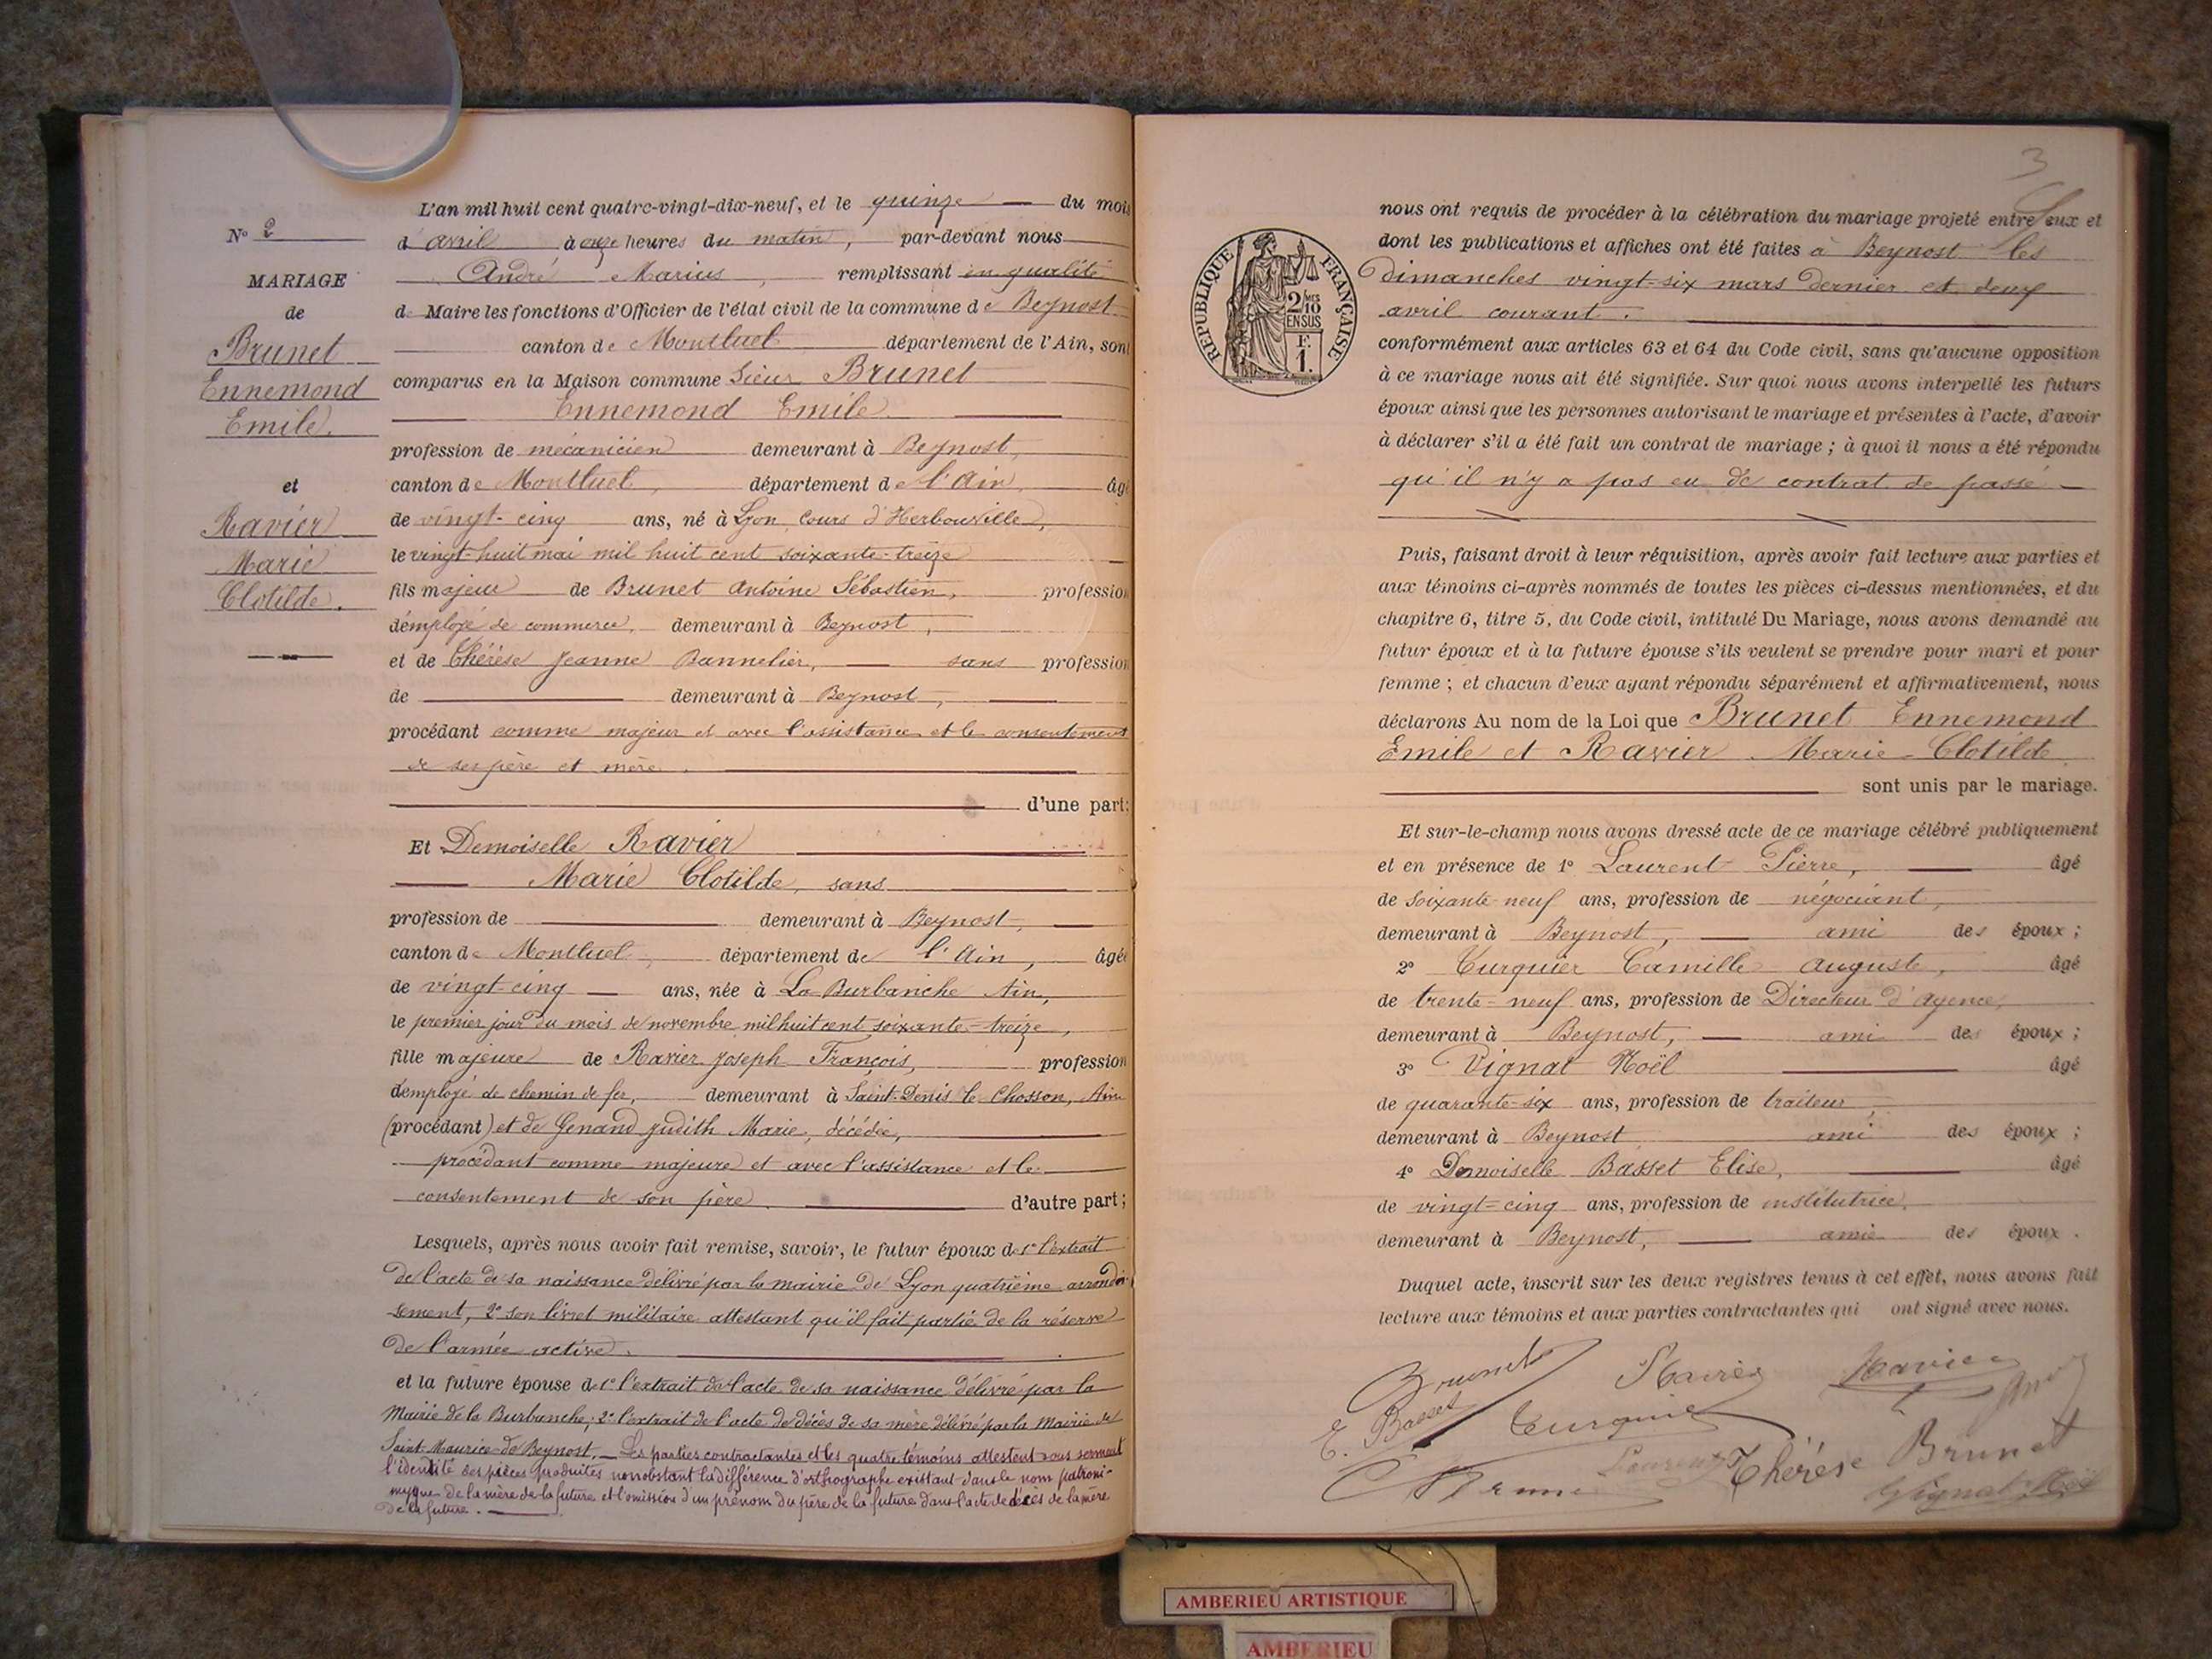 L'an mil huit cent quatre-vingt-dix-neuf, et le quinze du mois
N° 2
d'avril à onze heures du matin, par-devant nous
André Marius, remplissant en qualité
MARIAGE
de
de Maire les fonctions d'Officier de l'état civil de la commune de Beynost
canton de Montluel département de l'Ain, sont
Brunet
Ennemond
Emile.
comparus en la Maison commune Sieur Brunet
Ennemond Emile
profession de mécanicien demeurant à Beynost,
et
canton de Montluel, département de l'Ain, âgé
Ravier
Marie
Clotilde.
de vingt-cinq ans, né à Lyon, cours d'Herbouville,
le vingt-huit mai mil huit cent soixante-treize
fils majeur de Brunet Antoine Sébastien, profession
d'employé de commerce, demeurant à Beynost,
et de Thérèse Jeanne Bannelier, sans profession
de demeurant à Beynost,
procédant comme majeur et avec l'assistance et le consentement
de ses père et mère.
d'une part;
Et Demoiselle Ravier
Marie Clotilde, sans
profession de demeurant à Beynost,
canton de Montluel, département de l'Ain, âgée
de vingt-cinq ans, née à La Burbanche Ain,
le premier jour du mois de novembre mil huit cent soixante-treize,
fille majeure de Ravier Joseph François, profession
d'employé de chemin de fer, demeurant à Saint-Denis le Chosson, Ain
(procédant) et de Genand Judith Marie, décédée,
procédant comme majeure et avec l'assistance et le
consentement de son père. d'autre part;
Lesquels, après nous avoir fait remise, savoir, le futur époux de 1° l'extrait
de l'acte de sa naissance délivré par la mairie de Lyon quatrième arrondis-
sement, 2° son livret militaire attestant qu'il fait partie de la réserve
de l'armée active.
et la future épouse de 1° l'extrait de l'acte de sa naissance délivré par la
Mairie de la Burbanche; 2° l'extrait de l'acte de décès de sa mère délivré par la Mairie de
Saint-Maurice-de-Beynost. Les parties contractantes et les quatre témoins attestent sous serment
l'identité des pièces produites nonobstant la différence d'orthographe existant dans le nom patroni-
myque de la mère de la future et l'omission d'un prénom du père de la future dans l'acte de décès de la mère
de la future.
3
REPUBLIQUE FRANÇAISE
2/10 MES
EN SUS
F.
1.
nous ont requis de procéder à la célébration du mariage projeté entre eux et
dont les publications et affiches ont été faites à Beynost les
dimanches vingt-six mars dernier et deux
avril courant.
conformément aux articles 63 et 64 du Code civil, sans qu'aucune opposition
à ce mariage nous ait été signifiée. Sur quoi nous avons interpellé les futurs
époux ainsi que les personnes autorisant le mariage et présentes à l'acte, d'avoir
à déclarer s'il a été fait un contrat de mariage; à quoi il nous a été répondu
qu'il n'y a pas eu de contrat de passé
Puis, faisant droit à leur réquisition, après avoir fait lecture aux parties et
aux témoins ci-après nommés de toutes les pièces ci-dessus mentionnées, et du
chapitre 6, titre 5, du Code civil, intitulé Du Mariage, nous avons demandé au
futur époux et à la future épouse s'ils veulent se prendre pour mari et pour
femme; et chacun d'eux ayant répondu séparément et affirmativement, nous
déclarons Au nom de la Loi que Brunet Ennemond
Emile et Ravier Marie-Clotilde
sont unis par le mariage.
Et sur-le-champ nous avons dressé acte de ce mariage célébré publiquement
et en présence de 1° Laurent Pierre, âgé
de soixante-neuf ans, profession de négociant,
demeurant à Beynost, ami des époux;
2° Turquier Camille Auguste, âgé
de trente-neuf ans, profession de Directeur d'Agence,
demeurant à Beynost, ami des époux;
3° Vignat Noël âgé
de quarante-six ans, profession de traiteur,
demeurant à Beynost ami des époux;
4° Demoiselle Basset Elise, âgé
de vingt-cinq ans, profession de institutrice,
demeurant à Beynost, amie des époux.
Duquel acte, inscrit sur les deux registres tenus à cet effet, nous avons fait
lecture aux témoins et aux parties contractantes qui ont signé avec nous.
Brunet Ravier
E. Basset Turquier
Laurent Thérèse Brunet
Vignat Noël
AMBERIEU ARTISTIQUE
AMBERIEU